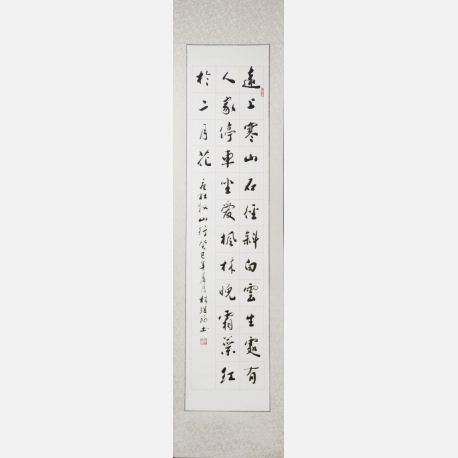 遠上寒山石徑斜白雲生處有
人家停車坐愛楓林晚霜葉紅
於二月花
唐杜牧山行癸巳年